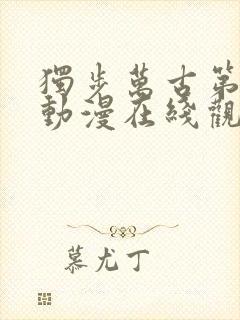 獨步萬古第
動漫在綫觀
慕尤丁